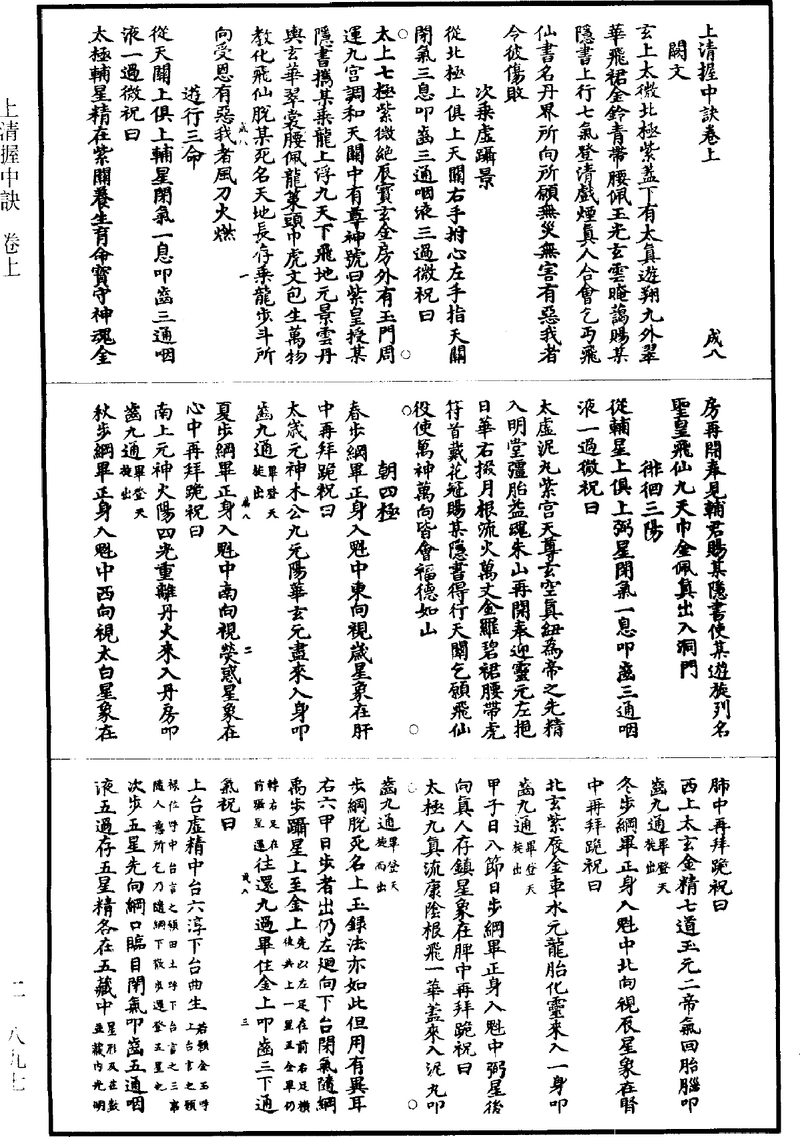 上清握中訣卷上
成八
闕文
玄上太微北極紫蓋下有太真遊翔九外翠
華飛裙金鈴青帶腰佩玉光玄雲晻藹賜某
隱書上行七氣登清戲煙真人合會乞丐飛
仙書名丹界所向所願無災無害有惡我者
令彼傷敗
次乘虛躡景
從北極上俱上天關右手拊心左手指天關
閉氣三息叩齒三通咽液三過微祝曰
太上七極紫微絶辰寳玄金房外有玉門周
運九宮調和天關中有尊神號曰紫皇授某
隱書攜某乘龍上浮九天下飛地元景雲丹
輿玄華翠裳腰佩龍策頭巾虎文包生萬物
教化飛仙脫某死名天地長存乘龍步斗所
向受恩有惡我者風刀火燃
成八
一
遊行三命
從天關上俱上輔星閉氣一息叩齒三通咽
液一過微祝曰
太極輔星精在紫關養生育命寳守神魂金
房再開奉見輔君賜某隱書使某遊旋列名
聖皇飛仙九天巾金佩真出入洞門
徘徊三陽
從輔星上俱上弼星閉氣一息叩齒三通咽
液一過微祝曰
太虛泥丸紫宮天尊玄空真紐為帝之先精
入明堂彊胎益魂朱山再開奉迎靈元左挹
日華右掇月根流火萬丈金羅碧裙腰帶虎
符首戴花冠賜某隱書得行天關乞願飛仙
役使萬神萬向皆會福德如山
朝四極
春步綱畢正身入魁中東向視歲星象在肝
中再拜跪祝曰
太歲元神木公九元陽華玄元盡來入身叩
齒九通畢登天旋出
成八
二
夏步綱畢正身入魁中南向視熒惑星象在
心中再拜跪祝曰
南上元神火陽四光重離丹火來入丹房叩
齒九通畢登天旋出
秋步綱畢正身入魁中西向視太白星象在
肺中再拜跪祝曰
西上太玄金精七道玉元二帝氣回胎腦叩
齒九通畢登天旋出
冬步綱畢正身入魁中北向視辰星象在腎
中再拜跪祝曰
北玄紫辰金車水元龍胎化靈來入一身叩
齒九通畢登天旋出
甲子日八節日步綱畢正身入魁中弼星後
向真人存鎮星象在脾中再拜跪祝曰
太極九真流康陰根飛一華蓋來入泥丸叩
齒九通畢登天旋而出
步綱脫死名上玉錄法亦如此但用有異耳
右六甲日步者出仍左廻向下台閉氣隨綱
禹步躡星上至金上先以左足在前右足橫後共上一星五金畢仍轉右足在前躡星還往還九過畢住金上叩齒三下通
成八
三
氣祝曰
上台虛精中台六淳下台曲生若願金玉呼上台言之願祿位呼中台言之願田土呼下台言之三事隨人意所乞乃隨綱下散步還登五星也
次步五星先向綱口臨目閉氣叩齒五通咽
液五過存五星精各在五藏中星形及在數並藏内光明
上清握中訣　卷上
二一八九七